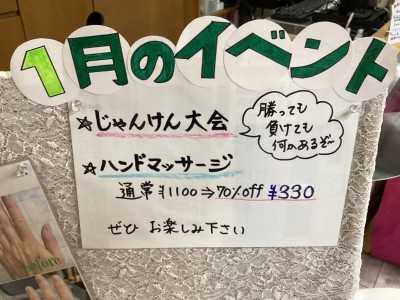 1月のイベント
☆じゃんけん大会
勝っても
負けても
何かあるぞ〜
☆ハンドマッサージ
通常 ¥1100⇒70%off ¥330
ぜひ お楽しみ下さい
before